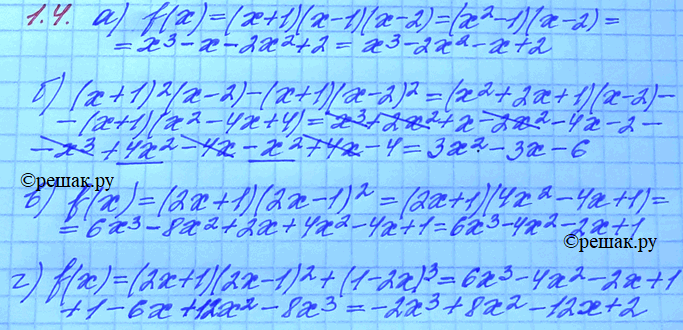 1.4. а) f(x)=(x+1)(x-1)(x-2)=(x²-1)(x-2)=
=x³-x-2x²+2=x³-2x²-x+2
б) (x+1)²(x-2)-(x+1)(x-2)²=(x²+2x+1)(x-2)-
-(x+1)(x²-4x+4)=x³+2x²+x-2x²-4x-2-
-x³+4x²-4x-x²+4x-4=3x²-3x-6
©решак.ру
в) f(x)=(2x+1)(2x-1)²=(2x+1)(4x²-4x+1)=
=6x³-8x²+2x+4x²-4x+1=6x³-4x²-2x+1
©решак.ру
г) f(x)=(2x+1)(2x-1)²+(1-2x)³=6x³-4x²-2x+1
+1-6x+12x²-8x³=-2x³+8x²-12x+2